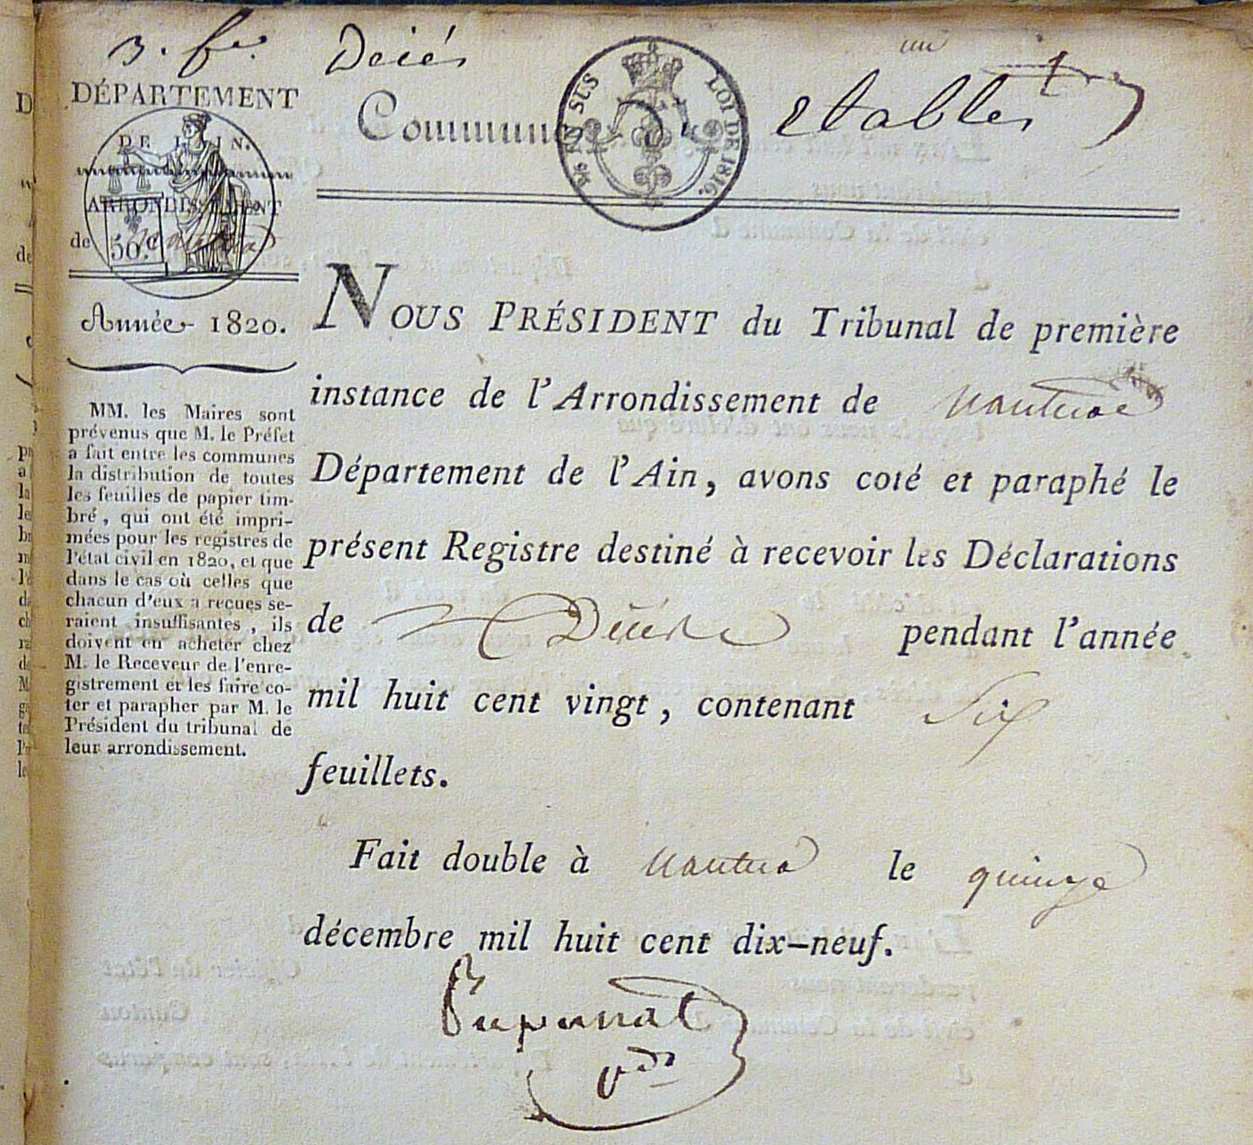 3. f.es Décés
DÉPARTEMENT
DE L'AIN.
ARRONDISSEMENT
de Nantua
50.c
Année 1820.
Commune d' Etables
EN SUS
LOI DE 1816.
MM. les Maires sont
prévenus que M. le Préfet
a fait entre les communes
la distribution de toutes
les feuilles de papier tim-
bré, qui ont été impri-
mées pour les registres de
l'état civil en 1820, et que
dans le cas où celles que
chacun d'eux a reçues se-
raient insuffisantes, ils
doivent en acheter chez
M. le Receveur de l'enre-
gistrement et les faire co-
ter et parapher par M. le
Président du tribunal de
leur arrondissement.
NOUS PRÉSIDENT du Tribunal de première
instance de l'Arrondissement de Nantua
Département de l'Ain, avons coté et paraphé le
présent Registre destiné à recevoir les Déclarations
de Décés pendant l'année
mil huit cent vingt, contenant Six
feuillets.
Fait double à Nantua le quinze
décembre mil huit cent dix-neuf.